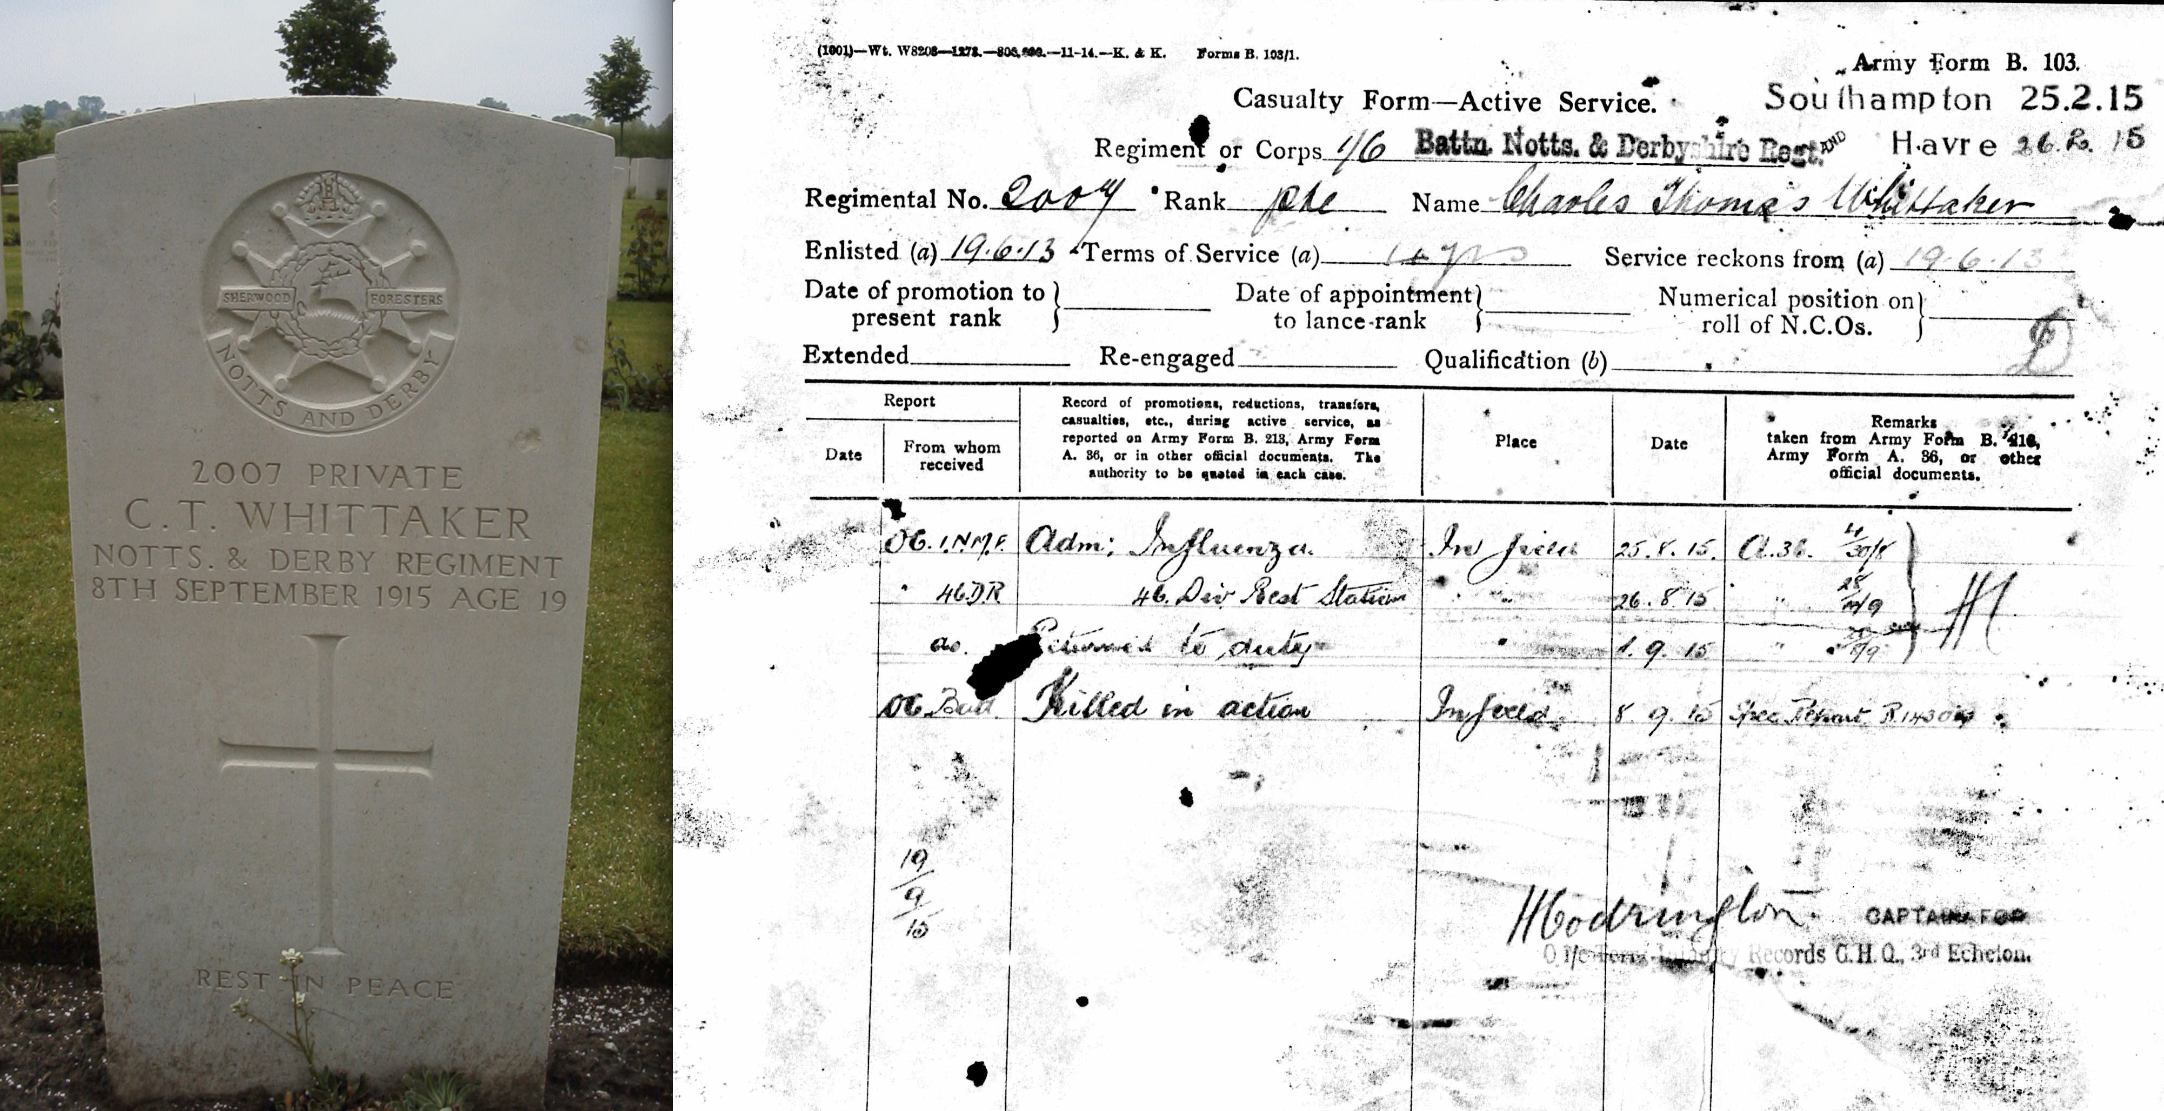 SHERWOOD FORESTERS
NOTTS AND DERBY
2007 PRIVATE
C.T. WHITTAKER
NOTTS. & DERBY REGIMENT
8TH SEPTEMBER 1915 AGE 19
REST IN PEACE
(1001)—Wt. W8208—1273.— —11-14.—K. & K. Forms B. 103/1.
Army Form B. 103.
Casualty Form—Active Service.
Southampton 25.2.15
Regiment or Corps 1/6 Battn. Notts. & Derbyshire Regt. AND Havre 26.2.15
Regimental No. 2007 Rank Pte Name Charles Thomas Whittaker
Enlisted (a) 19.6.13 Terms of Service (a) yrs Service reckons from (a) 19.6.13
Date of promotion to present rank
Date of appointment to lance-rank
Numerical position on roll of N.C.Os.
Extended Re-engaged Qualification (b)
D
Report
Date
From whom received
Record of promotions, reductions, transfers,
casualties, etc., during active service, as
reported on Army Form B. 213, Army Form
A. 36, or in other official documents. The
authority to be quoted in each case.
Place
Date
Remarks
taken from Army Form B. 213,
Army Form A. 36, or other
official documents.
OC. 1.N.M.F. Adm: Influenza. In field 25.8.15. A.36. 30/8
" 46DR 46. Div Rest Station " " 26.8.15 "
do. Returned to duty " 1.9.15 "
OC Batt. Killed in action In field 8.9.15 Spec. Report
19/9/15
HCodrington. CAPTAIN FOR
Records G.H.Q., 3rd Echelon.